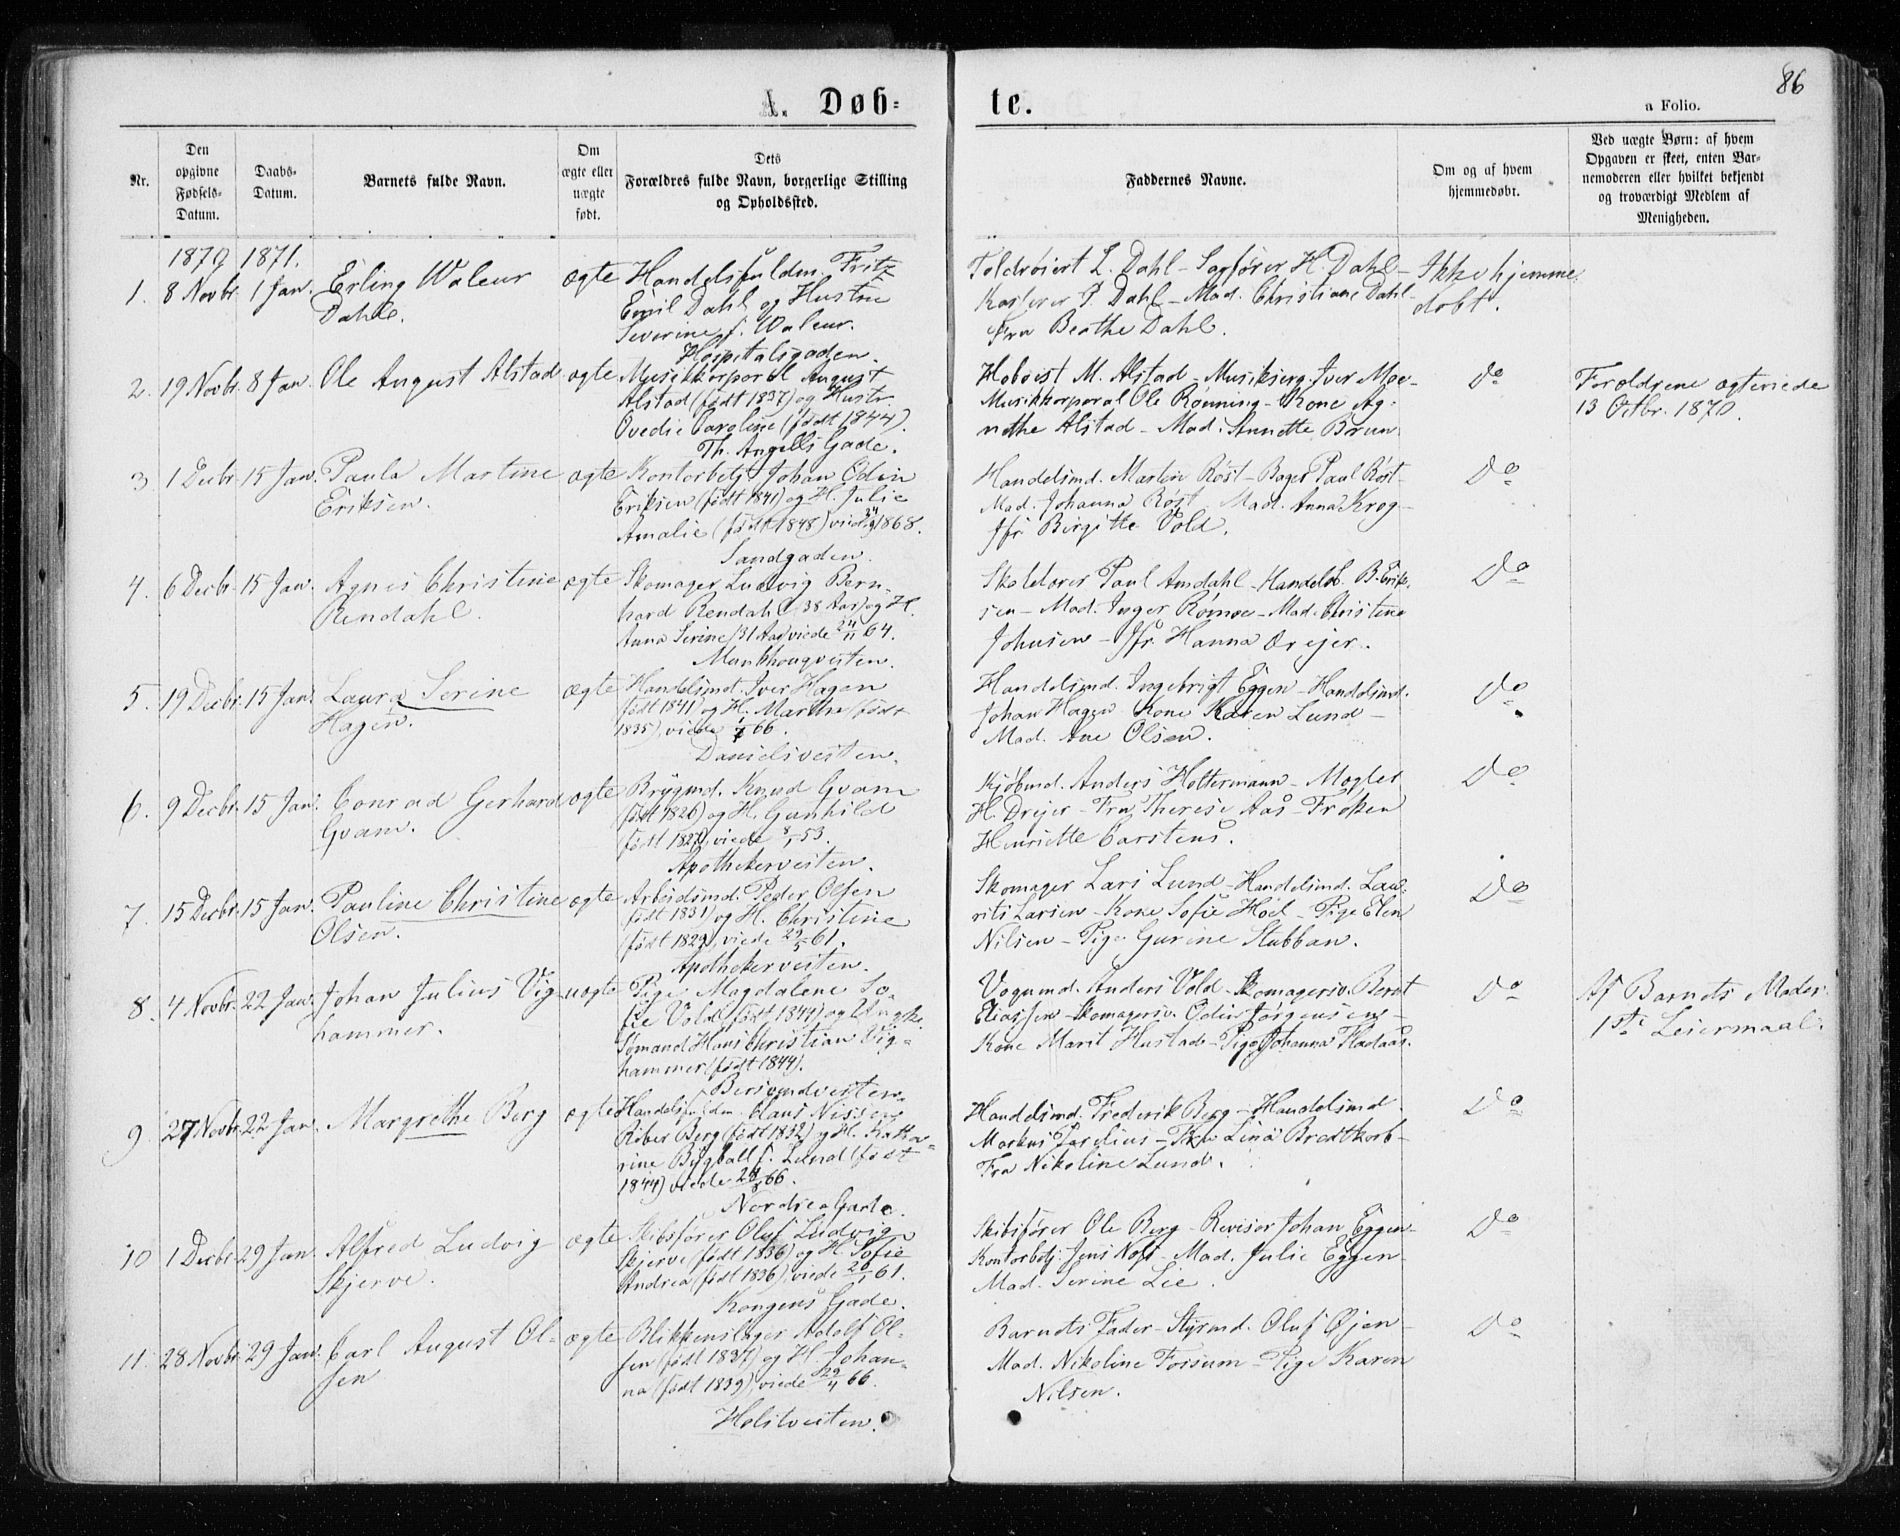 86
A. Døb-
te.
a Folio.
Nr.
Den
opgivne
Fødsels-
Datum.
Daabs-
Datum.
Barnets fulde Navn.
Om
ægte eller
uægte
født.
Dets
Forældres fulde Navn, borgerlige Stilling
og Opholdssted.
Faddernes Navne.
Om og af hvem
hjemmedøbt.
Ved uægte Børn: af hvem
Opgaven er skeet, enten Bar-
nemoderen eller hvilket bekjendt
og troværdigt Medlem af
Menigheden.
1870 1871.
1. 8 Novbr. 1 Jan. Erling Waleur
Dahl.
ægte
Handelsfuldm. Fritz
Emil Dahl og Hustru
Severine f. Waleur.
Hospitalsgaden.
L. Dahl - Sagfører H. Dahl -
Kasserer P. Dahl - Mad. Christiane Dahl -
Fru Beathe Dahl.
Ikke hjemme-
døbt.
2. 19 Novbr. 8 Jan. Ole August Alstad
ægte
Musikkorporal August
Alstad (født 1837) og Hustr.
Ovedie Caroline (født 1844).
Th. Angells Gade.
M. Alstad - Musikserg. Iver Moe -
Musikkorporal Ole Rønning - Kone Ag-
nethe Alstad - Mad. Annette Bruun.
Do
Forældrene ægteviede
13 Octbr. 1870.
3 1 Decbr. 15 Jan. Paula Martine
Eriksen.
ægte
Kontorbetj. Johan Odin
Eriksen (født 1841) og H. Julie
Amalie (født 1848) viede 1868.
Sandgaden.
Handelsmd. Martin Røst - Bager Paul Røst -
Mad. Johanna Røst - Mad. Anna Krog -
Jfr. Birgitte Vold.
Do
4. 6 Decbr. 15 Jan. Agnes Christine
Rendahl.
ægte
Skomager Ludvig Bern-
hard Rendahl (38 Aar) og H.
Anna Serine (31 Aar) viede 24/11 64.
Munkhougveiten.
Paul Amdahl - Handelsb. B. Erik-
sen - Mad. Inger - Mad. Christine
Johnsen - Jfr. Hanna Dreyer.
Do
5. 19 Decbr. 15 Jan. Laura Serine
Hagen.
ægte
Handelsmd. Iver Hagen
(født 1841) og H. Marthe (født
1835), viede 66.
Danielsveiten.
Handelsmd. Ingebrigt Eggen - Handelsmd.
Johan Hagen - Kone Karen Lund -
Mad. Ane Olsen.
Do
6. 9 Decbr. 15 Jan. Conrad Gerhard
Gvam.
ægte
Brygmd. Knud Gvam
(født 1826) og H. Gunhild
(født 1827), viede 53.
Apothekerveiten.
Kjøbmd. Anders Holtermann - Mægler
H. Drejer - Fru Therese Aas - Frøken
Henriette Carstens.
Do
7. 15 Decbr. 15 Jan. Pauline Christine
Olsen.
ægte
Arbeidsmd. Peder Olsen
(født 1831) og H. Christine
(født 1829), viede 29/5 61.
Apothekerveiten.
Skomager Lars Lund - Handelsmd. Lau-
rits Larsen - Kone Sofie Høel - Pige Elen
Nilsen - Pige Gurine Stubban.
Do
8. 4 Novbr. 22 Jan. Johan Julius Vig-
hammer.
uægte
Pige Magdalene So-
fie Vold (født 1844) og Ungk.
Sømand Hans Christian Vig-
hammer (født 1844).
Bersvendveiten.
Vognmd. Anders Vold - Skomagersv. Bernt
Eliassen - Skomagersv. Odin Jørgensen -
Kone Marit Hustad - Pige Johanna Fladaas.
Do
Af Barnets Moder.
1ste Leiermaal.
9. 27 Novbr. 22 Jan. Margrethe Berg
ægte
Handelsfuldm. Hans Nissen
Riber Berg (født 1832) og H. Katha-
rine Bügball f. Lund (født
1844) viede 66.
Nordre Gade.
Handelsmd. Frederik Berg - Handelsmd.
Markus Parelius - Lina Bredtkorb -
Fru Nikoline Lund.
Do
10 1 Decbr. 29 Jan. Alfred Ludvig
Skjerve.
ægte
Skibsfører Oluf Ludvig
Skjerve (født 1836) og H. Sofie
Andrea (født 1836), viede 20/1 61.
Kongens Gade.
Skibsfører Ole Berg - Revisor Johan Eggen -
Kontorbetj. Jens - Mad. Julie Eggen -
Mad. Serine Lie.
Do
11. 28 Novbr. 29 Jan. Carl August Ol-
sen
ægte
Blikkenslager Adolf Ol-
sen (født 1837) og H. Johan-
na (født 1839), viede 29/4 66.
Holstveiten.
Barnets Fader - Styrmd. Oluf Øjen -
Mad. Nikoline Forsum - Pige Karen
Nilsen.
Do